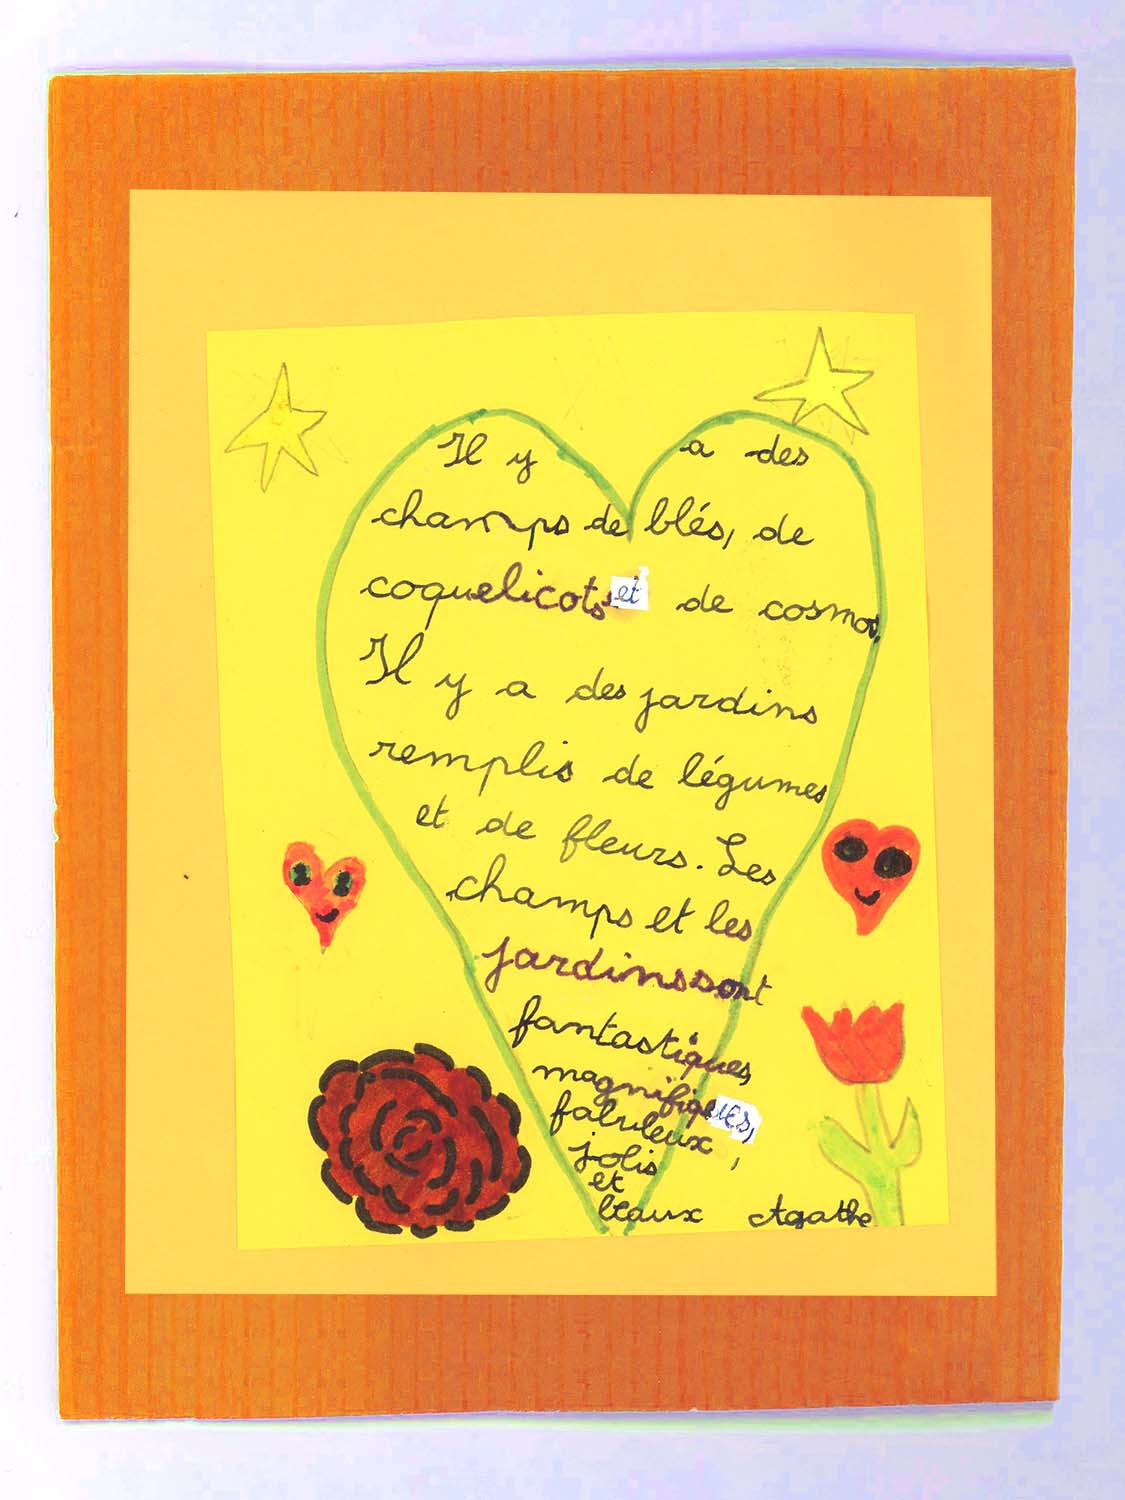 Il y a des
champs de blés, de
coquelicots et de cosmos.
Il y a des jardins
remplis de légumes
et de fleurs. Les
champs et les
jardins sont
fantastiques,
magnifiques,
fabuleux,
jolis
et
beaux Agathe